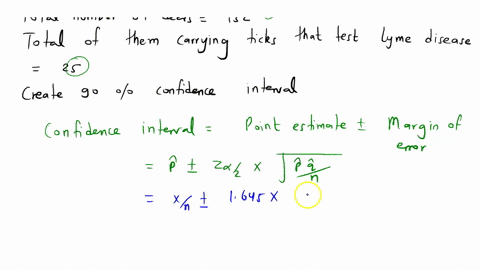 Total number of deers = 152
Total of them carrying ticks that test Lyme disease
= 25
Create 90 % confidence interval
Confidence interval = Point estimate ± Margin of error
= p̂ ± Zα/2 × √(p̂ q̂/n)
= x/n ± 1.645 ×